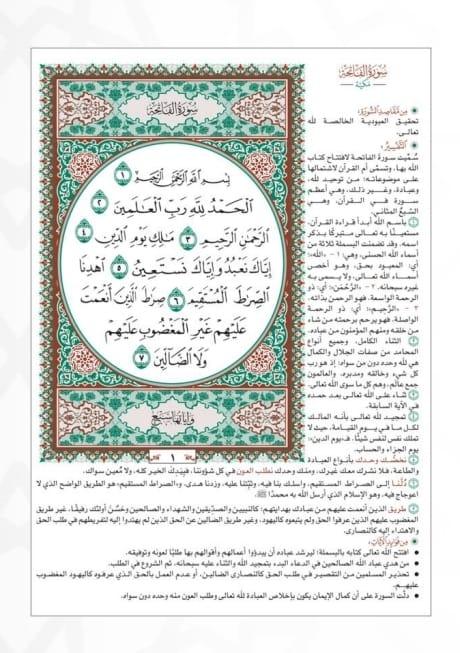 سُورَةُ الفَاتِحَةِ
بِسْمِ اللَّهِ الرَّحْمَٰنِ الرَّحِيمِ ١
الْحَمْدُ لِلَّهِ رَبِّ الْعَالَمِينَ ٢
الرَّحْمَٰنِ الرَّحِيمِ ٣ مَالِكِ يَوْمِ الدِّينِ ٤
إِيَّاكَ نَعْبُدُ وَإِيَّاكَ نَسْتَعِينُ ٥ اهْدِنَا
الصِّرَاطَ الْمُسْتَقِيمَ ٦ صِرَاطَ الَّذِينَ أَنْعَمْتَ
عَلَيْهِمْ غَيْرِ الْمَغْضُوبِ عَلَيْهِمْ
وَلَا الضَّالِّينَ ٧
وآياتها سبع
١
سُورَةُ الفَاتِحَةِ
مَكِّيَّة
مِن مَقَاصِدِ السُّورَةِ:
تحقيق العبودية الخالصة لله
تعالى.
التَّفْسِيرُ:
سُمِّيت سورة الفاتحة لافتتاح كتاب
الله بها، وتسمَّى أم القرآن لاشتمالها
على موضوعاته؛ من توحيد لله،
وعبادة، وغير ذلك، وهي أعظم
سورة في القرآن، وهي
السَّبعُ المثاني.
١ باسم الله أبدأ قراءة القرآن،
مستعينًا به تعالى متبركًا بذكر
اسمه. وقد تضمنت البسملة ثلاثة من
أسماء الله الحسنى، وهي: ١- «الله»؛
أي: المعبود بحق، وهو أخص
أسماء الله تعالى، ولا يسمى به
غيره سبحانه. ٢- «الرَّحْمَٰن»؛ أي: ذو
الرحمة الواسعة. فهو الرحمن بذاته.
٣- «الرَّحِيم»؛ أي: ذو الرحمة
الواصلة. فهو يرحم برحمته من شاء
من خلقه ومنهم المؤمنون من عباده.
٢ الثناء الكامل، وجميع أنواع
المحامد من صفات الجلال والكمال
هي له وحده دون من سواه؛ إذ هو رب
كل شيء وخالقه ومدبره. والعالمون
جمع عالَم، وهم كل ما سوى الله تعالى.
٣ ثناء على الله تعالى بعد حمده
في الآية السابقة.
٤ تمجيد لله تعالى بأنه المالك
لكل ما في يوم القيامة، حيث لا
تملك نفس لنفس شيئًا. فـ«يوم الدين»:
يوم الجزاء والحساب.
٥ نخصُّك وحدك بأنواع العبادة
والطاعة، فلا نشرك معك غيرك، ومنك وحدك نطلب العون في كل شؤوننا، فبِيَدِكَ الخير كله، ولا مُعين سواك.
٦ دُلَّنا إلى الصراط المستقيم، واسلك بنا فيه، وثبِّتنا عليه، وزدنا هدى. و«الصراط المستقيم» هو الطريق الواضح الذي لا
اعوجاج فيه، وهو الإسلام الذي أرسل الله به محمدًا ﷺ.
٧ طريق الذين أنعمت عليهم من عبادك بهدايتهم؛ كالنبيين والصدِّيقين والشهداء والصالحين وحَسُنَ أولئك رفيقًا، غير طريق
المغضوب عليهم الذين عرفوا الحق ولم يتبعوه كاليهود، وغير طريق الضالين عن الحق الذين لم يهتدوا إليه لتفريطهم في طلب الحق
والاهتداء إليه كالنصارى.
مِن فَوَائِدِ الآيَاتِ:
افتتح الله تعالى كتابه بالبسملة؛ ليرشد عباده أن يبدؤوا أعمالهم وأقوالهم بها طلبًا لعونه وتوفيقه.
من هدي عباد الله الصالحين في الدعاء البدء بتمجيد الله والثناء عليه سبحانه، ثم الشروع في الطلب.
تحذير المسلمين من التقصير في طلب الحق كالنصارى الضالين، أو عدم العمل بالحق الذي عرفوه كاليهود المغضوب
عليهم.
دلَّت السورة على أن كمال الإيمان يكون بإخلاص العبادة لله تعالى وطلب العون منه وحده دون سواه.